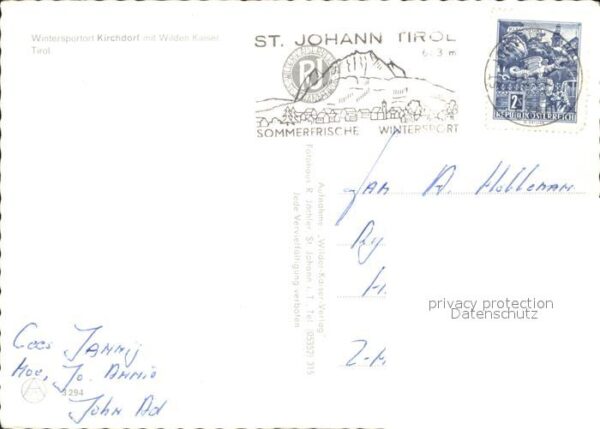 Wintersportort Kirchdorf mit Wilden Kaiser
Tirol
ST. JOHANN TIROL
SOMMERFRISCHE WINTERSPORT
2
REPUBLIK ÖSTERREICH
Aufnahme "Wilder Kaiser Verlag"
Fotohaus R. Jöchler, St. Johann i. T., Tel. (05352) 315
Jede Vervielfältigung verboten
Jan A. Holleman
H.
Z-H
privacy protection
Datenschutz
Cees Janny
Jo. Annie
John Ad
3294